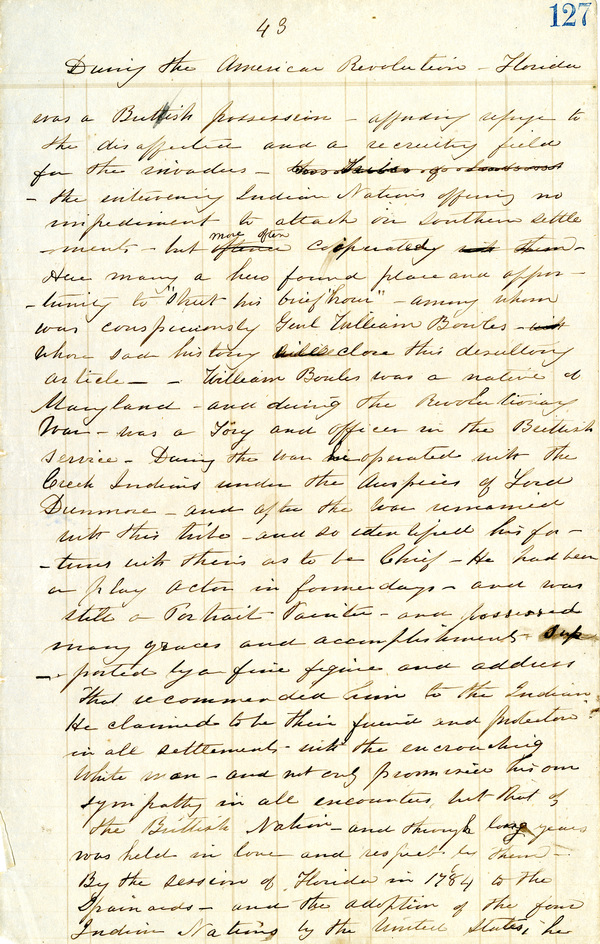 43
127
During the American Revolution - Florida
was a Brittish possession - affording refuge to
the disaffected and a recruiting field
for the invaders -
- the intervening Indian Nations offering no
impediment to attack on southern settle
-ments - but more often cooperated -
Here many a hero found place and oppor-
-tunity to "strut his brief hour" - among whom
was conspicuously Genl William Bowles -
whose sad history close this desultory
article - - William Bowles was a native of
Maryland - and during the Revolutionary
War - was a Tory and officer in the Brittish
service - During the war he operated with the
Creek Indians under the Auspices of Lord
Dunmore - and after the War remained
with this tribe - and so identified his for-
-tunes with theirs as to be Chief - He had been
a play actor in former days - and was
still a Portrait Painter - and possessed
many graces and accomplishments - sup
- ported by a fine figure and address
that recommended him to the Indian
He claimed to be their friend and protector
in all settlements - with the encroaching
White man - and not only promised his own
sympathy in all encounters, but that of
the Brittish Nation - and through long years
was held in love and respect by them -
By the session of Florida in 1784 to the
Spainards - and the adoption of the four
Indian Nations by the United States, he